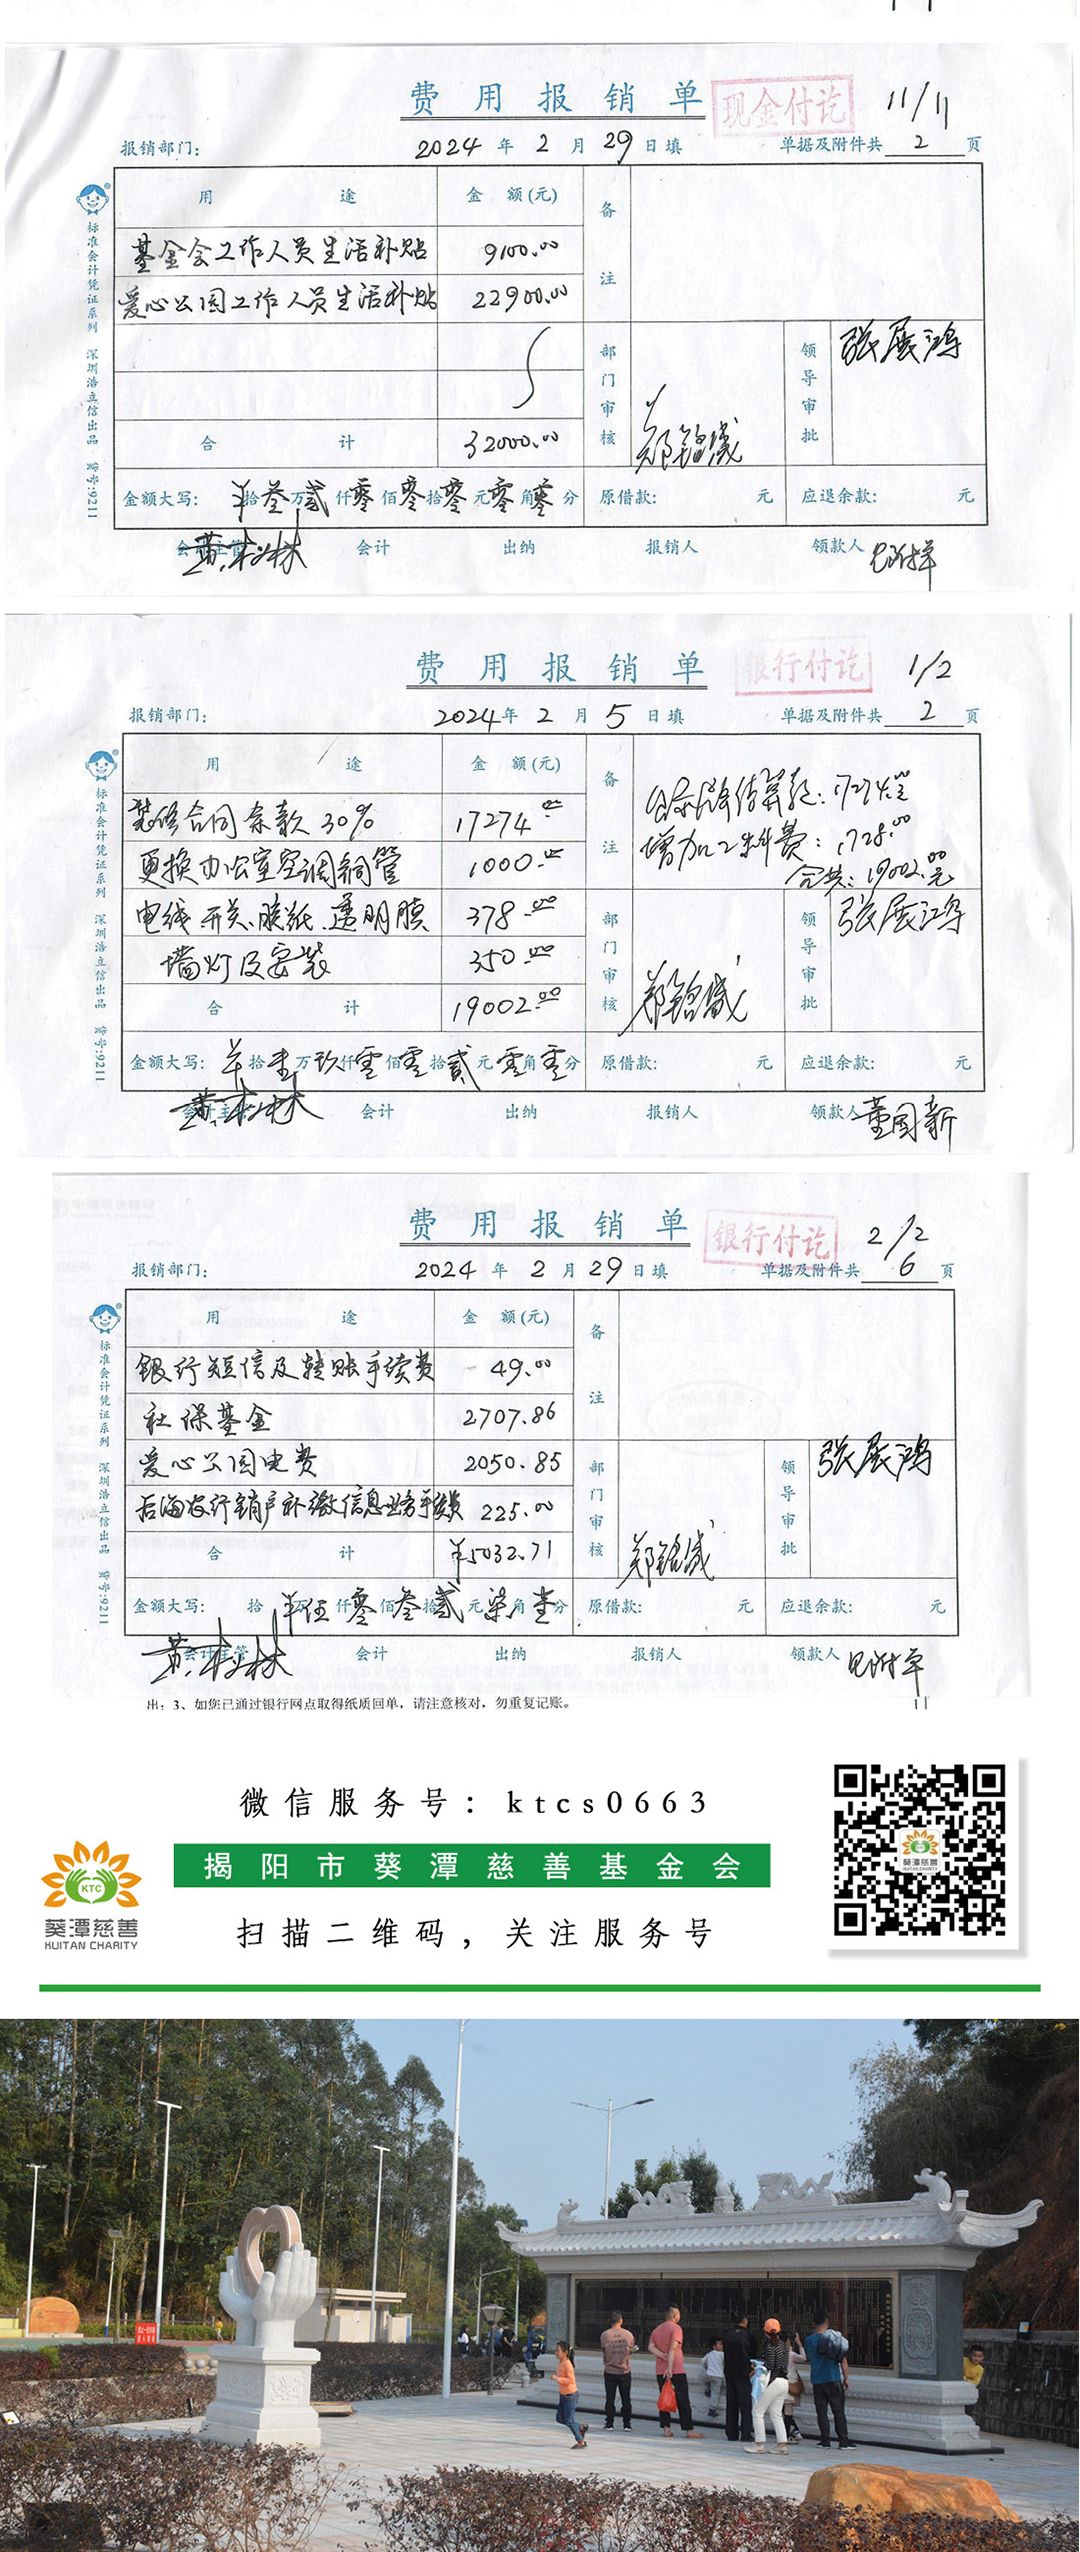 费用报销单 现金付讫 11/11
报销部门: 2024年2月29日填 单据及附件共2页
用途 金额(元) 备注
基金会工作人员生活补贴 9100.00
爱心公园工作人员生活补贴 22900.00
部门审核 郑铭盛 领导审批 张展鸿
合计 32000.00
金额大写: 拾叁万贰仟零佰零拾零元零角零分 原借款: 元 应退余款: 元
会计主管 黄 林 会计 出纳 报销人 领款人 见附单
标准会计凭证系列 深圳浩立信出品 货号:9211
费用报销单 银行付讫 1/2
报销部门: 2024年2月5日填 单据及附件共2页
用途 金额(元) 备注
装修合同余款30% 17274.00
更换办公室空调铜管 1000.00
电线.开关.胶纸.透明膜 378.00
墙灯及安装 350.00
结算款:17274元
增加工料费:1728.00
合共:19002.00元
部门审核 郑铭盛 领导审批 张展鸿
合计 19002.00
金额大写: 拾壹万玖仟零佰零拾贰元零角零分 原借款: 元 应退余款: 元
会计主管 黄 林 会计 出纳 报销人 领款人 董国新
标准会计凭证系列 深圳浩立信出品 货号:9211
费用报销单 银行付讫 2/2
报销部门: 2024年2月29日填 单据及附件共6页
用途 金额(元) 备注
银行短信及转账手续费 49.00
社保基金 2707.86
爱心公园电费 2050.85
后海农行销户补缴信息业务手续费 225.00
部门审核 郑铭盛 领导审批 张展鸿
合计 ¥5032.71
金额大写: 拾 万伍仟零佰叁拾贰元柒角壹分 原借款: 元 应退余款: 元
会计主管 黄 林 会计 出纳 报销人 领款人 见附单
标准会计凭证系列 深圳浩立信出品 货号:9211
出:3、如您已通过银行网点取得纸质回单,请注意核对,勿重复记账。
微信服务号:ktcs0663
揭阳市葵潭慈善基金会
扫描二维码,关注服务号
KTC
葵潭慈善
KUITAN CHARITY
葵潭慈善
KUITAN CHARITY